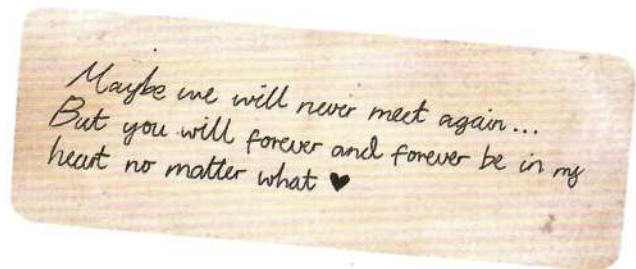 Maybe we will never meet again...
But you will forever and forever be in my
heart no matter what ♥